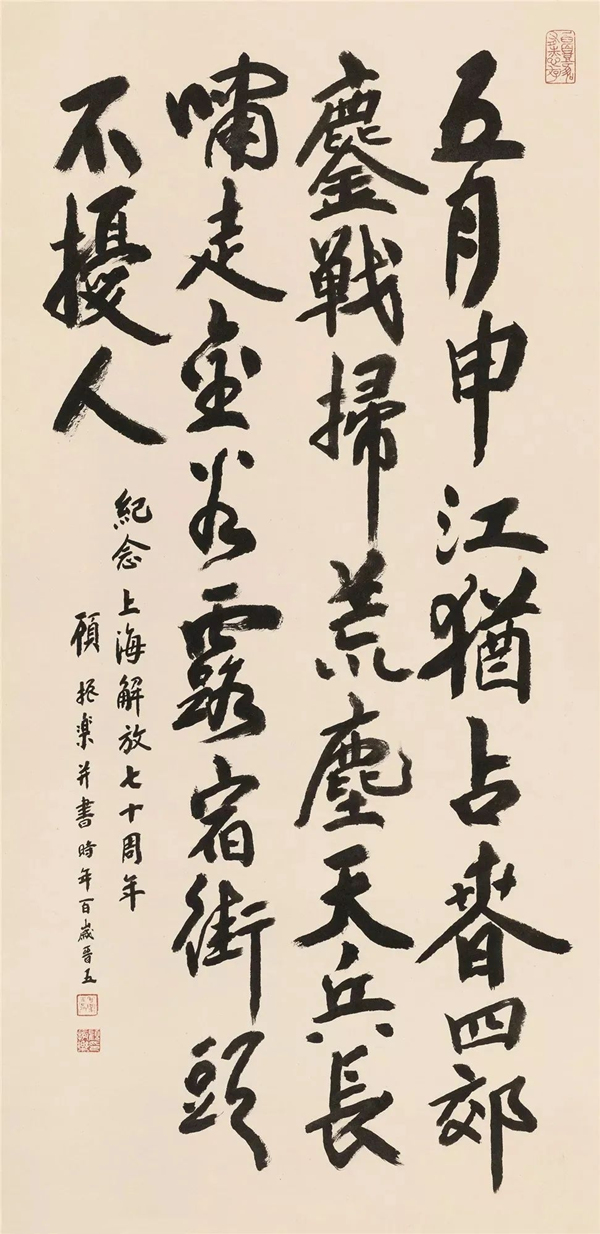 五月申江猶占春四郊
鏖戰掃荒塵天兵長
嘯走金谷露宿街頭
不擾人
紀念上海解放七十周年
顧振樂并書時年百歲晉五